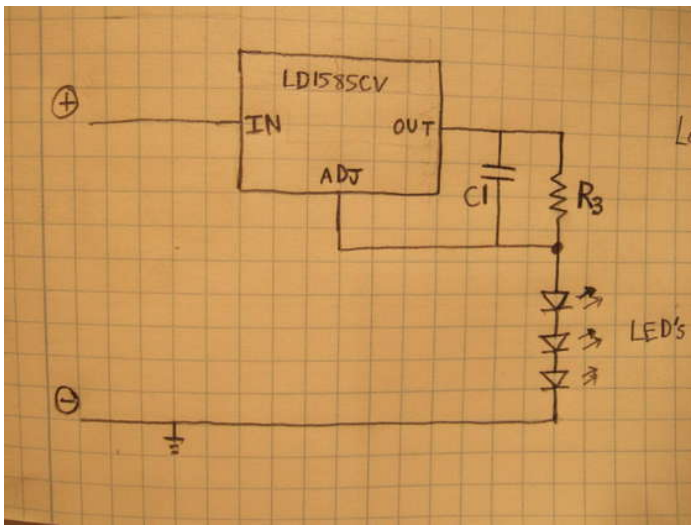 LD1585CV
+
IN
OUT
ADJ
C1
R3
LED's
-